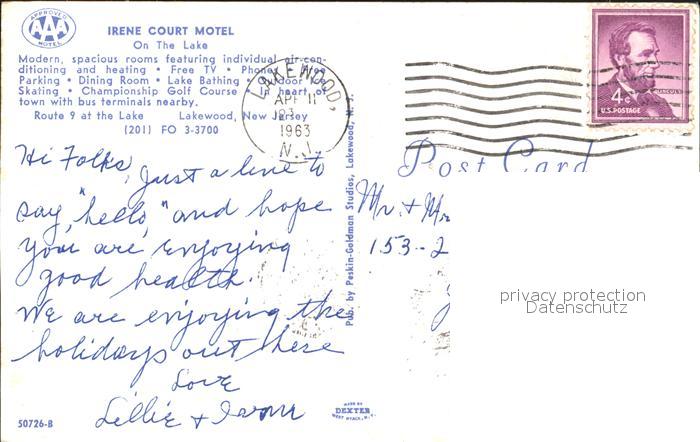 APPROVED
AAA
MOTEL
IRENE COURT MOTEL
On The Lake
Modern, spacious rooms featuring individual air-con-
ditioning and heating • Free TV • Phones • Free
Parking • Dining Room • Lake Bathing • Outdoor Ice
Skating • Championship Golf Course • In heart of
town with bus terminals nearby.
Route 9 at the Lake Lakewood, New Jersey
(201) FO 3-3700
LAKEWOOD,
APR 11
1963
N.J.
LINCOLN
4¢
U.S. POSTAGE
Post Card
Hi Folks, just a line to
say, "hello," and hope
you are enjoying
good health.
We are enjoying the
holidays out here
Love
Lillie +
Mr. + Mr
153-2
Pub. by Peskin-Goldman Studios, Lakewood, N. J.
privacy protection
Datenschutz
50726-B
MADE BY
DEXTER
WEST NYACK, N.Y.